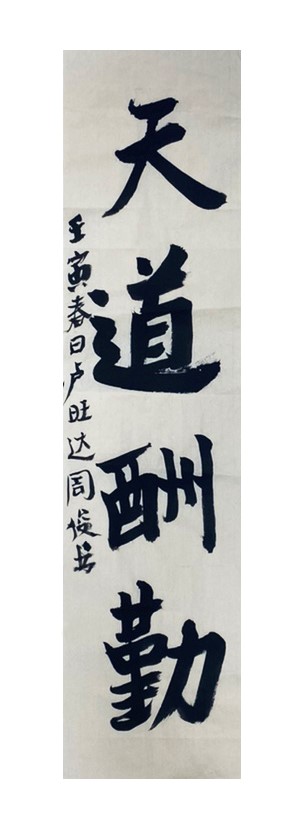 天道酬勤
壬寅春日卢旺达周俊书